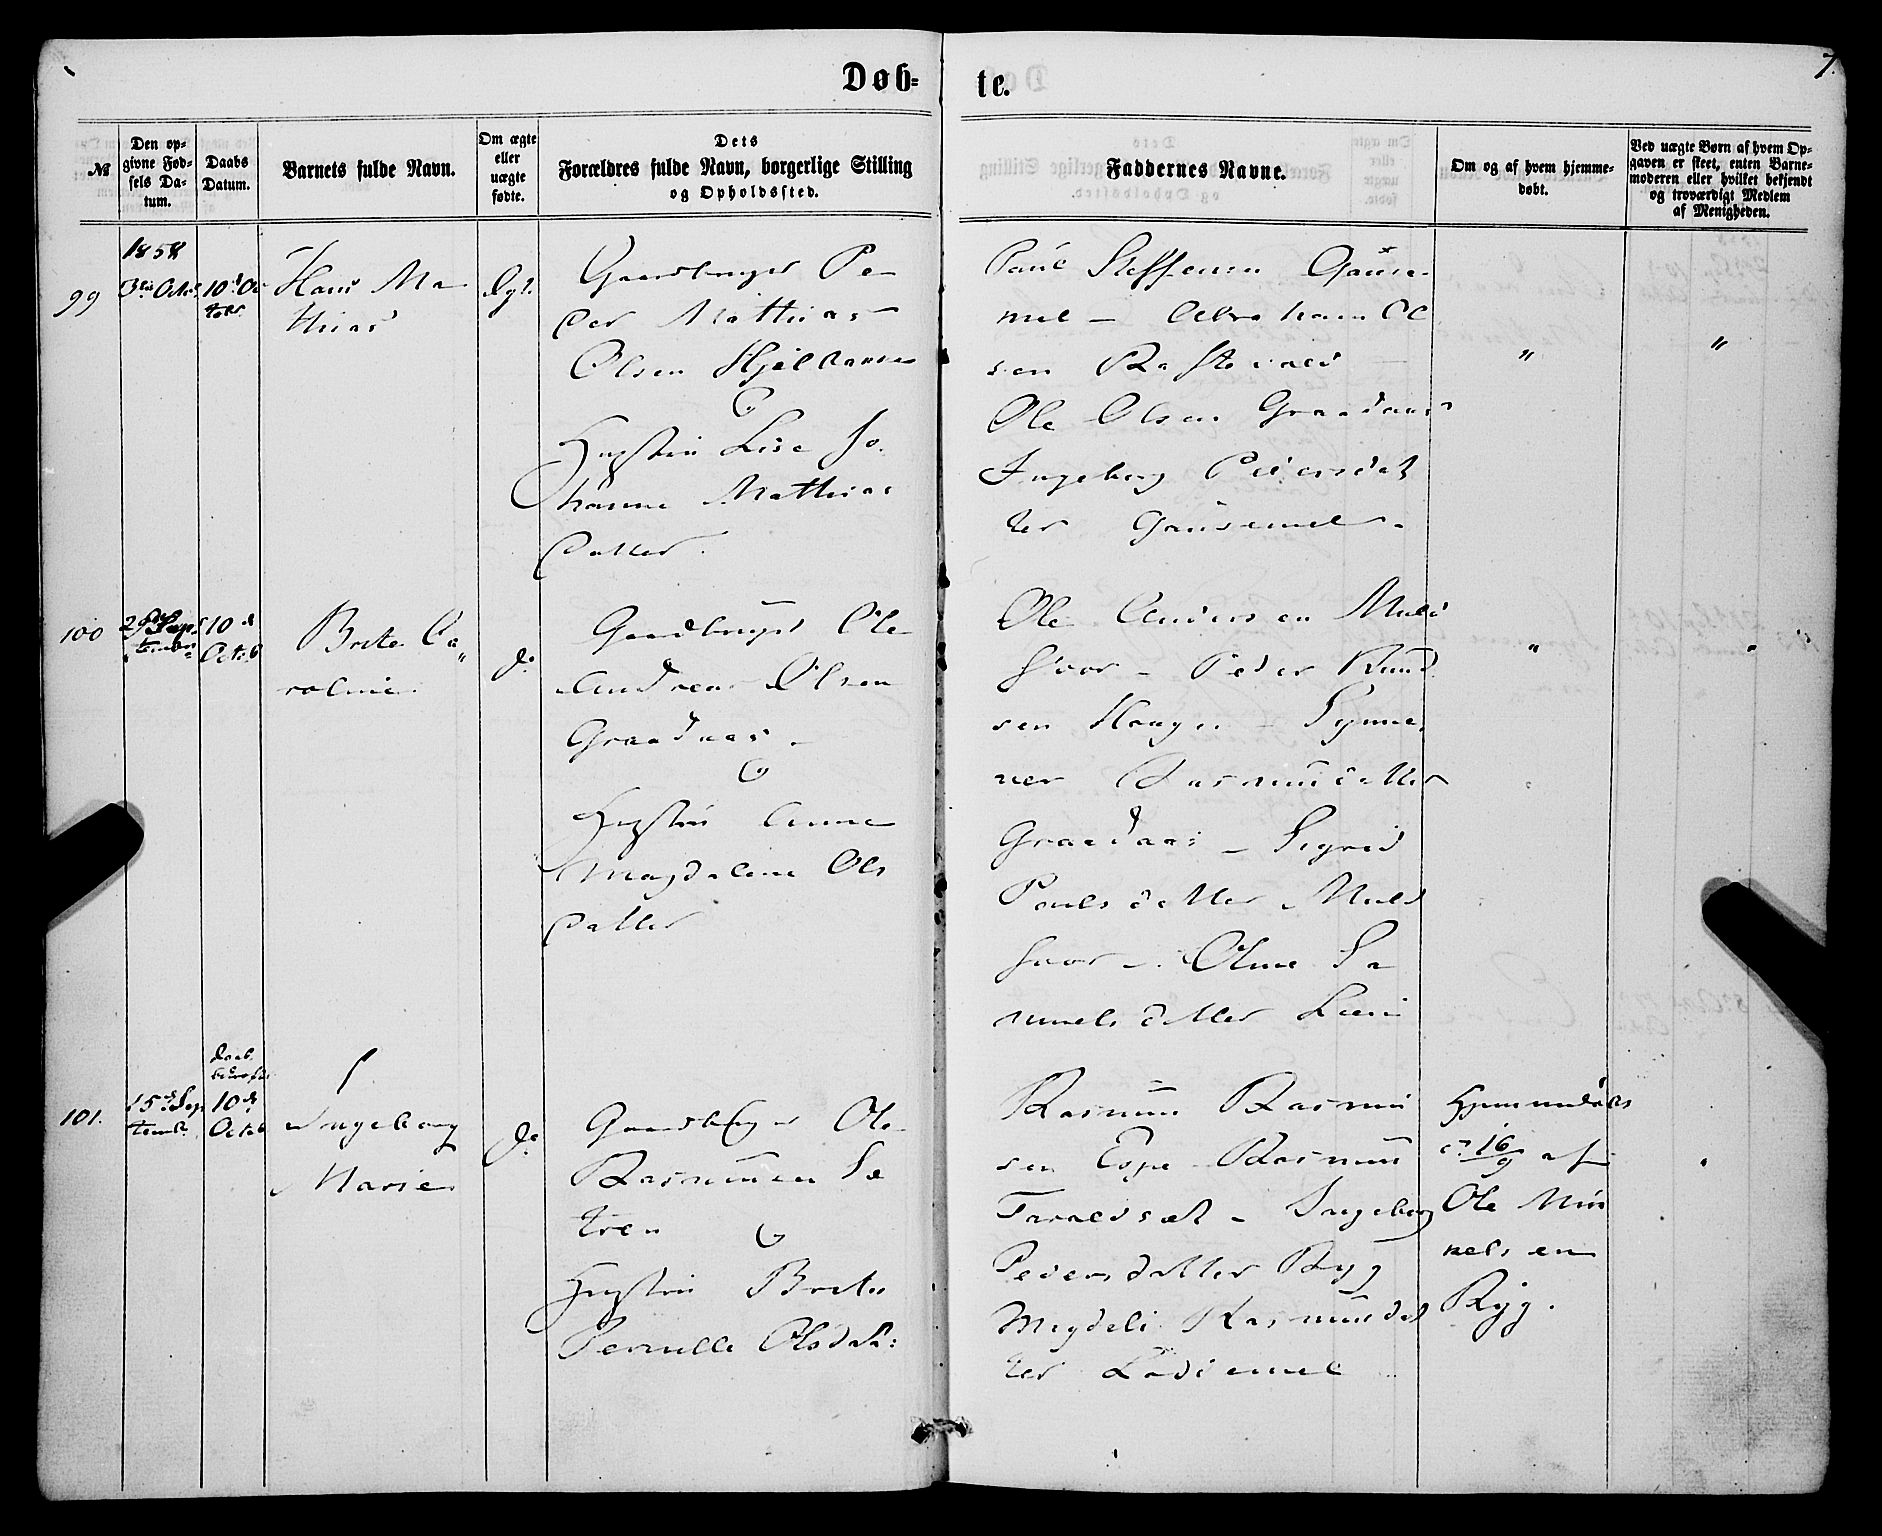 Døb-
te.
7.
№
Den op-
givne Fød-
sels Da-
tum.
Daabs
Datum.
Barnets fulde Navn.
Om ægte
eller
uægte
fødte.
Dets
Forældres fulde Navn, borgerlige Stilling
og Opholdssted.
Faddernes Navne.
Om og af hvem hjemme-
døbt.
Ved uægte Børn af hvem Op-
gaven er skeet, enten Barne-
moderen eller hvilket bekjendt
og troværdigt Medlem
af Menigheden.
1858
99
3die Octbr
10d Oc
tobr.
Hans Ma-
thias
Ægt.
Gaardbruger Pe-
der Mathias
Olsen
&
Hustru Lise Jo-
hanne Mathias
Datter.
Paul Steffensen Gause-
mel - Abraham Ol
sen
Ole Olsen Graadaas
Ingeborg Pedersdat
ter Gausemel -
"
"
100
29de Sep
tembr
10d
Octob
Brite Ca-
roline
do
Gaardbruger Ole
Andreas Olsen
Graadaas -
&
Hustru Anne
Magdalene Ols
Datter
Ole Andersen Muld
svor - Peder Knud
sen Haugen - Synne
ver Rasmusdatter
Graadaas - Sigrid
Paulsdatter Muld
svor - Oline Sa
muelsdatter Lien
"
"
101.
15d Sep
tembr.
Daab
10d
Octob
Ingeborg
Marie
do
Gaardbruger Ole
Rasmusen Sæ
tren &
Hustru Brite
Pernille Olsdatr:
Rasmus Rasmus
sen Espe - Rasmus
Taraldset - Ingeborg
Pedersdatter Ryg
Megdeli Rasmusdat
ter Ladiemel
Hjemmedøbt
d. 16/9 af
Ole
Ryg.